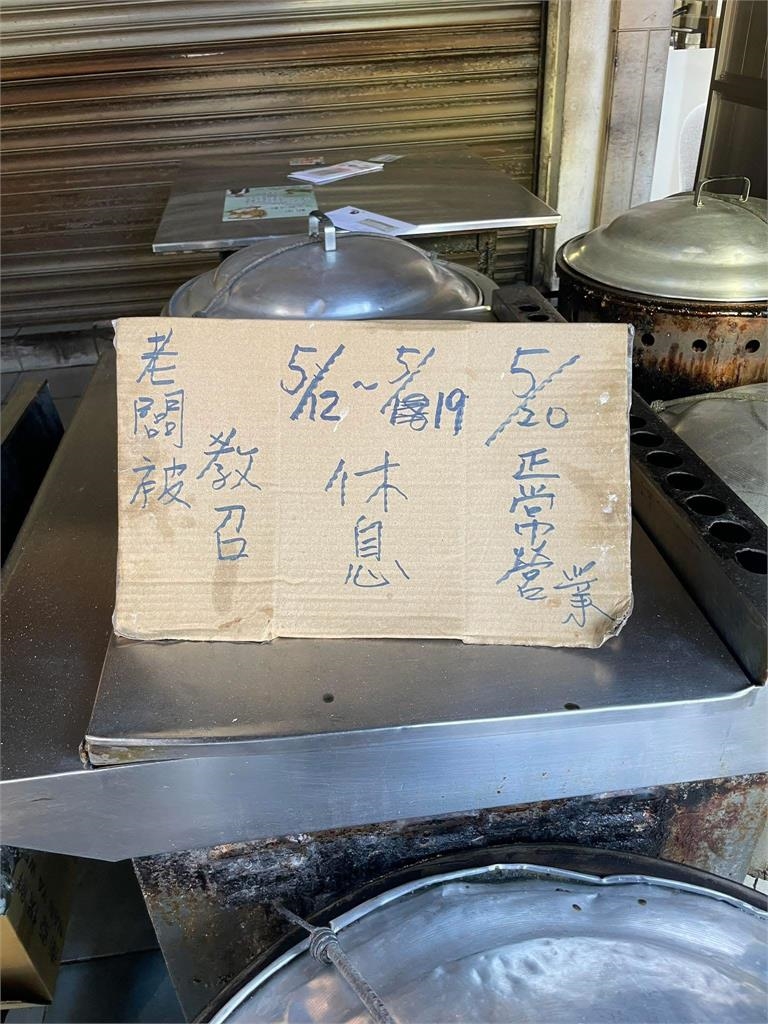 老闆被
教召
5/12~5/19
休息
5/20
正常營業